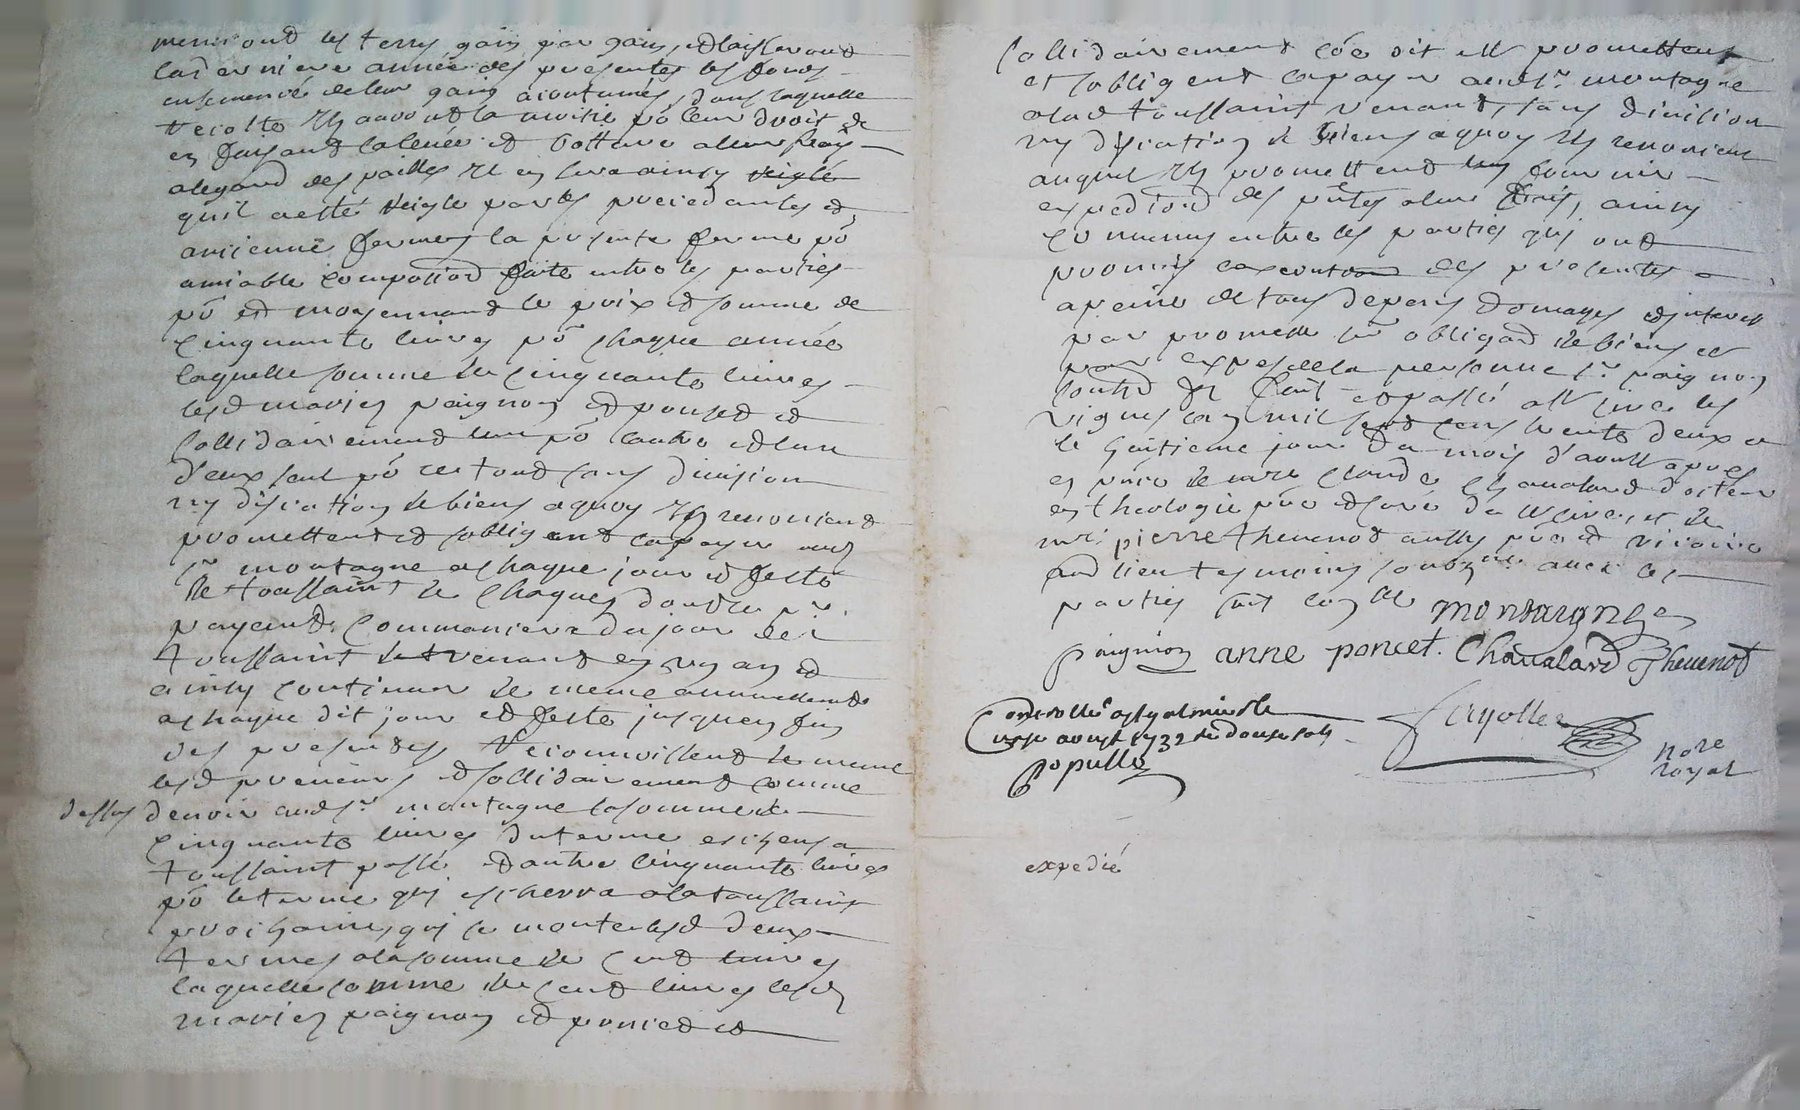 les terres gain par gain, et laisseront
la derniere année des presentes les fonds
ensemencé de leur gains acoutumés, dans laquelle
recolte Ils auront la moitié pō leur droit de
en faisant la levée et batture a leur frais
a legard des pailles Il en sera ainsy reiglé
quil a esté reiglé par les precedantes et
ancienne fermes la presente ferme pō
amiable composiōn faite entre les parties
pō et moyennand le prix et somme de
cinquante livres pō chaque année
laquelle somme de cinquante livres
lesd mariez paignon et ponset et
sollidairement lun pō lautre et lun
d'eux seul pō le tout sans division
ny discution de biens a quoy Ils renoncient
promettent et sobligent la payer aud
sr montagne a chaque jour et feste
de toussaint de chaques dont le pr.
payemt. commencera du jour de
toussaint venant en un an et
ainsy continuer de meme annuellemt
a chaque dit jour et feste jusques fin
des presentes. Reconnoissent de meme
lesd preneurs et sollidairement comme
dessus devoir aud sr montagne la somme de
cinquante livres du terme escheu a
toussaint passé et autre cinquante livres
pō le terme qui escherra a la toussaint
prochaine, qui se monte lesd deux
termes a la somme de cent livres
laquelle somme de cent livres lesd
mariez paignon et ponced et
sollidairement côe dit est promettent
et sobligent la payer aud sr montagne
a lad toussaint venant, sans division
ny discution de biens a quoy Ils renoncient
auquel Ils promettent fournir
expediōn des pntes a leur frais, ainsy
convenus entre les parties qui ont
promis des presentes
a peine de tous depens domages et interest
par promesse obligaōn de biens et
par expres de la personne sr paignon
fait et passé les
vignes lan mil sept cens trente deux et
le huitieme jour du mois d'aoust apres
claude chavalard docteur
en theologie pre et curé de et de
mre pierre thevenod aussy pre et vicaire
aud lieu tesmoins avec les
parties
montaigne
paignon anne poncet. Chavalard Thevenot
Controllé
aoust 1732 douze sols
Populle
nore
royal
expedié